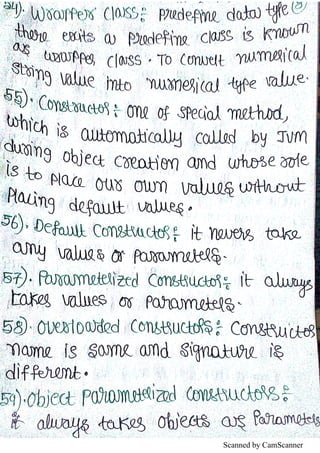 54). Wrapper class:- predefine data type (8)
there exits a predefine class is known
as wrapper class. To convelt numelical
string value into numerical type value.
55). Constructor:- one of special method,
which is automatically called by JVM
during object creation and whose role
is to place our own values without
placing default values.
56). Default Constructor:- it nevers take
any values or parameters.
57). Parametelized Constructor:- it always
takes values or parameters.
58). Overloaded Constructors:- Constructor
name is same and signature is
different.
59). Object parametelized constructors:-
it always takes objects as parameters
Scanned by CamScanner